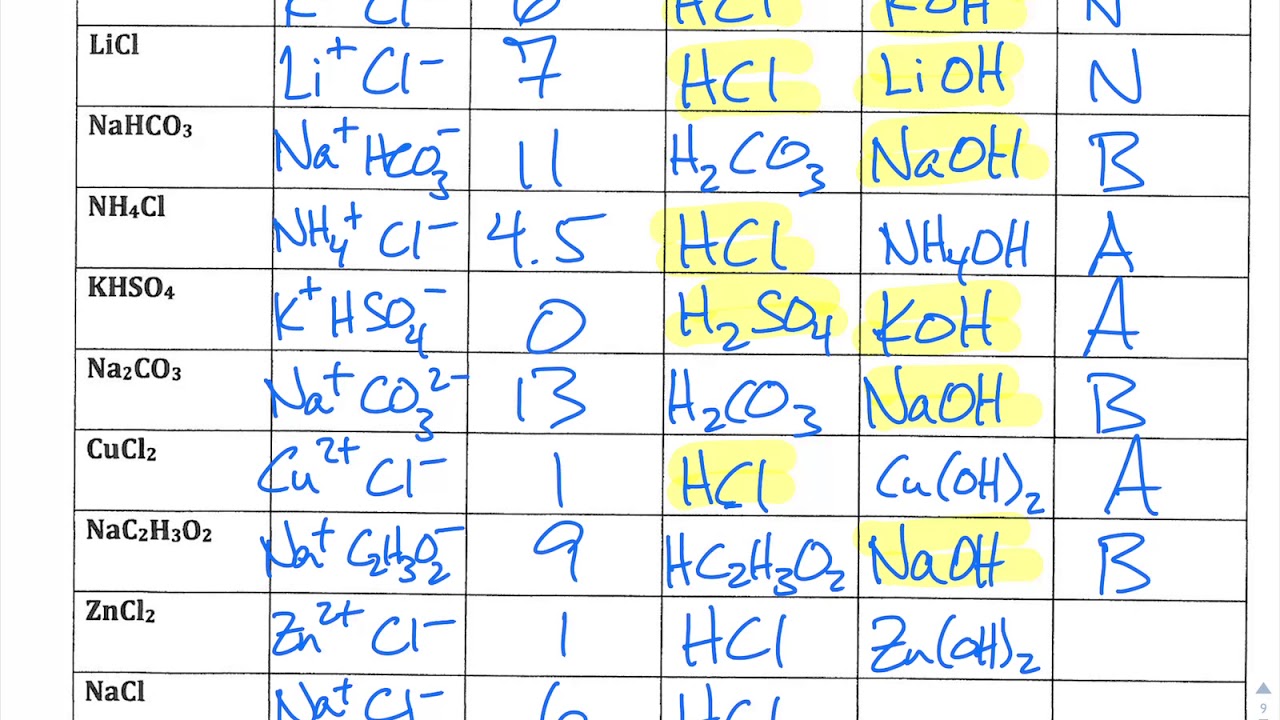 K⁺ Cl⁻ 6 HCl KOH N
LiCl Li⁺ Cl⁻ 7 HCl LiOH N
NaHCO₃ Na⁺ HCO₃⁻ 11 H₂CO₃ NaOH B
NH₄Cl NH₄⁺ Cl⁻ 4.5 HCl NH₄OH A
KHSO₄ K⁺ HSO₄⁻ 0 H₂SO₄ KOH A
Na₂CO₃ Na⁺ CO₃²⁻ 13 H₂CO₃ NaOH B
CuCl₂ Cu²⁺ Cl⁻ 1 HCl Cu(OH)₂ A
NaC₂H₃O₂ Na⁺ C₂H₃O₂⁻ 9 HC₂H₃O₂ NaOH B
ZnCl₂ Zn²⁺ Cl⁻ 1 HCl Zn(OH)₂
NaCl Na⁺ Cl⁻ 6 HCl
9